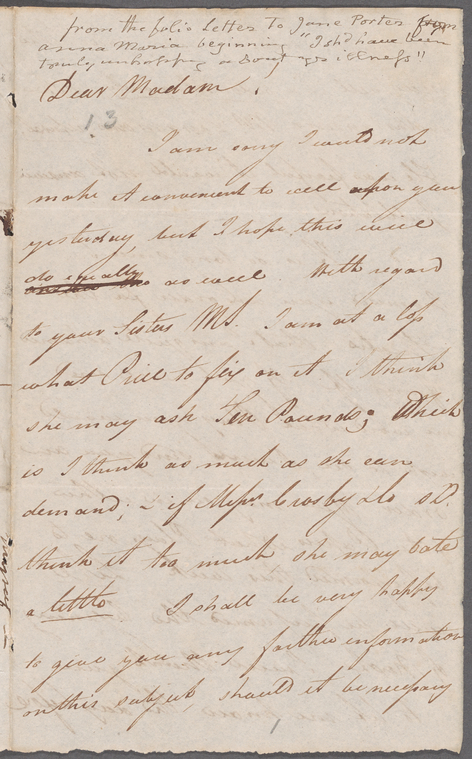 from the folio Letter to Jane Porter from
anna Maria beginning "I shd have been
truly unhappy about yr illness"
Dear Madam,
13
I am sorry I could not
make it convenient to call upon you
yesterday, but I hope this will
do equally
as well. With regard
to your Sisters MS. I am at a loss
what Price to fix on it I think
she may ask Ten Pounds; Which
is I think as much as she can
demand; & if Messrs Crosby & Co sD.
think it too much she may bate
a little I shall be very happy
to give you any farther information
on this subject, should it be necessary